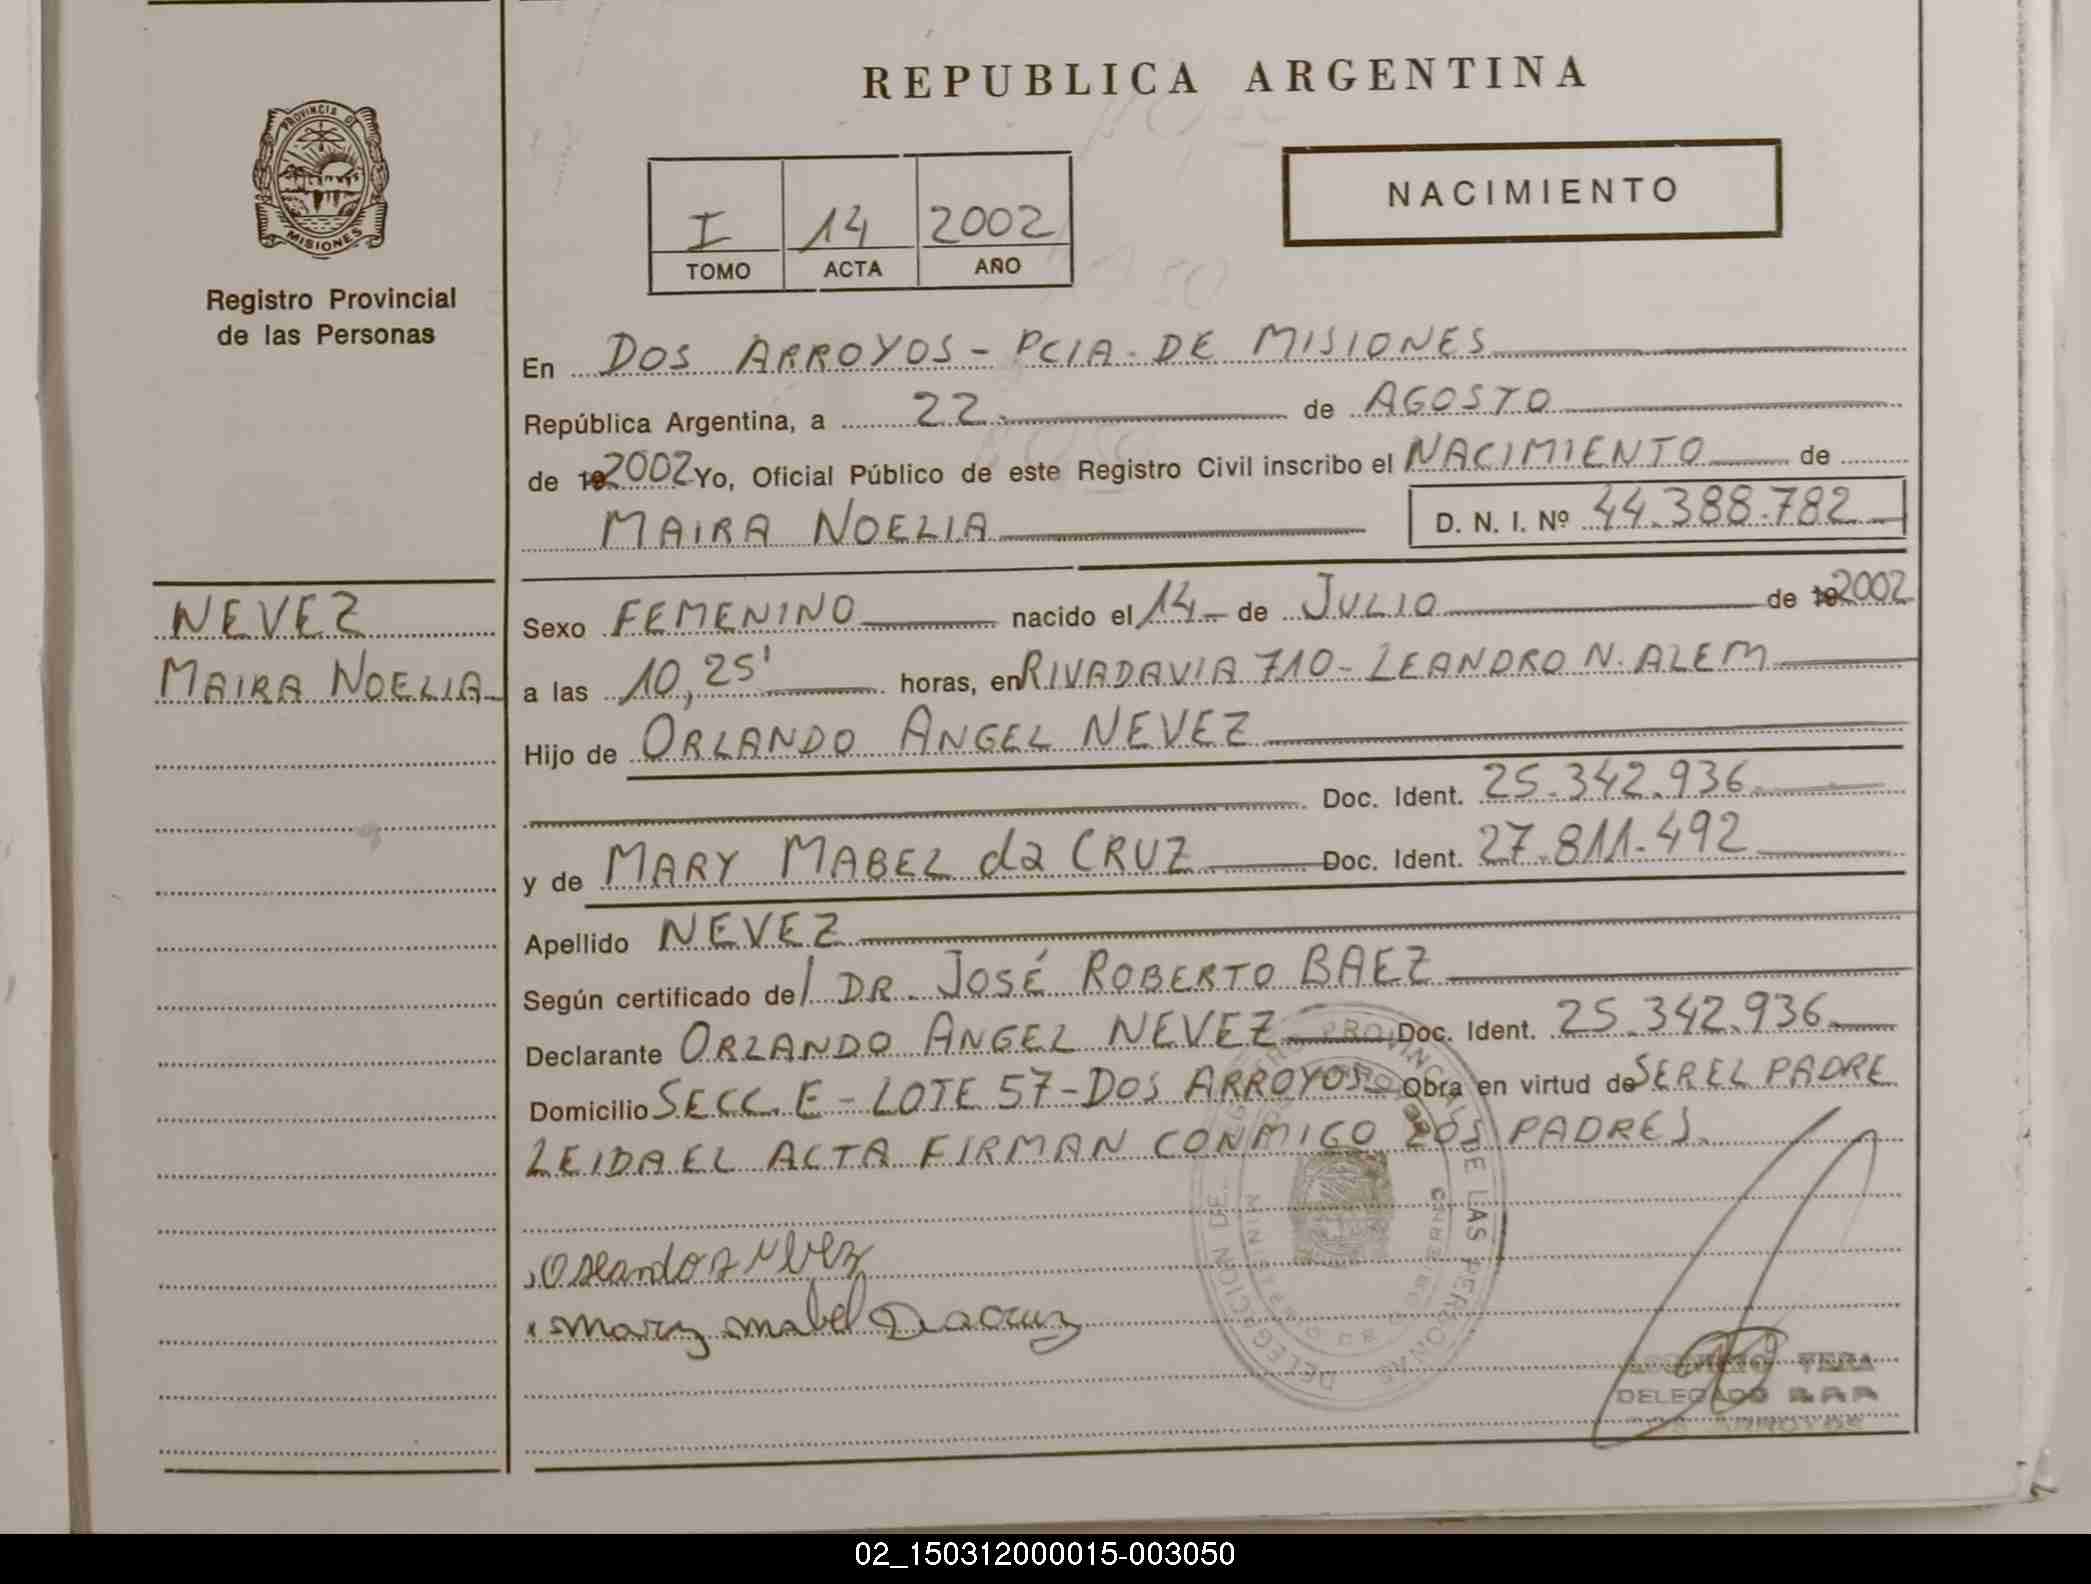 REPUBLICA ARGENTINA
PROVINCIA DE
MISIONES
Registro Provincial
de las Personas
NACIMIENTO
I 14 2002
TOMO ACTA AÑO
En DOS ARROYOS - PCIA. DE MISIONES
República Argentina, a 22 de AGOSTO
de 192002 Yo, Oficial Público de este Registro Civil inscribo el NACIMIENTO de
MAIRA NOELIA D. N. I. Nº 44.388.782
NEVEZ
MAIRA NOELIA
Sexo FEMENINO nacido el 14 de JULIO de 192002
a las 10,25' horas, en RIVADAVIA 710 - LEANDRO N. ALEM
Hijo de ORLANDO ANGEL NEVEZ
Doc. Ident. 25.342.936
y de MARY MABEL da CRUZ Doc. Ident. 27.811.492
Apellido NEVEZ
Según certificado del DR. JOSÉ ROBERTO BAEZ
Declarante ORLANDO ANGEL NEVEZ Doc. Ident. 25.342.936
Domicilio SECC. E - LOTE 57 - DOS ARROYOS Obra en virtud de SER EL PADRE
LEIDA EL ACTA FIRMAN CONMIGO LOS PADRES.
Orlando A Nevez
Mary Mabel Dacruz
DELEGACION DE REGISTRO PROVINCIAL DE LAS PERSONAS
MINISTERIO DE GOBIERNO
VERA
DELEGADO
DOS ARROYOS
02_150312000015-003050